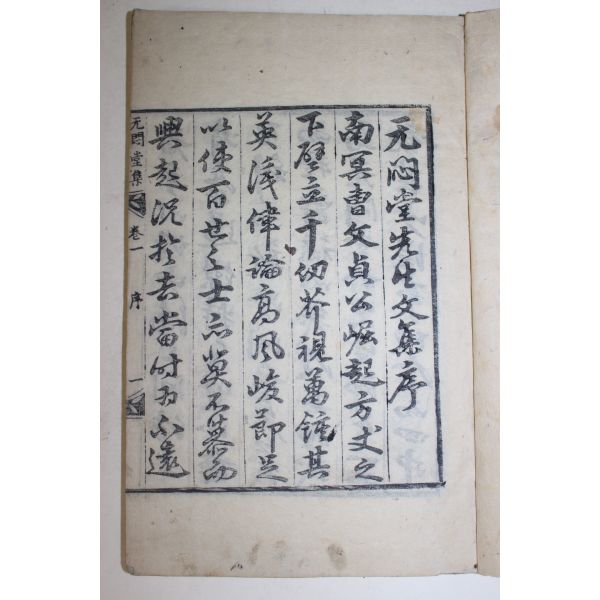 无悶堂先生文集序
南冥曺文貞公崛起方丈之
下壁立千仞芥視萬鍾其
英淺偉論高風峻節足
以使百世之士亦莫不慕而
興起況於去當時為不遠
无悶堂集 卷一 序 一